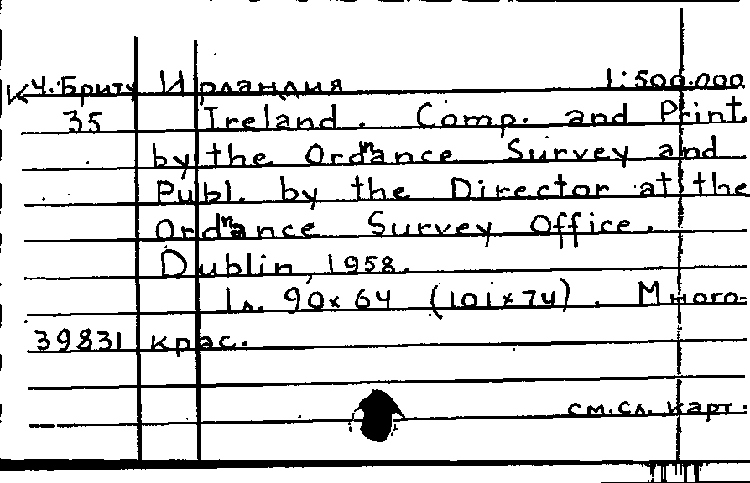 К Ч. Брит Ирландия 1:500.000
35 Ireland. Comp. and Print.
by the Ordnance Survey and
Publ. by the Director at the
Ordnance Survey Office.
Dublin, 1958.
1л. 90×64 (101×74). Много-
39831 крас.
см. сл. карт.